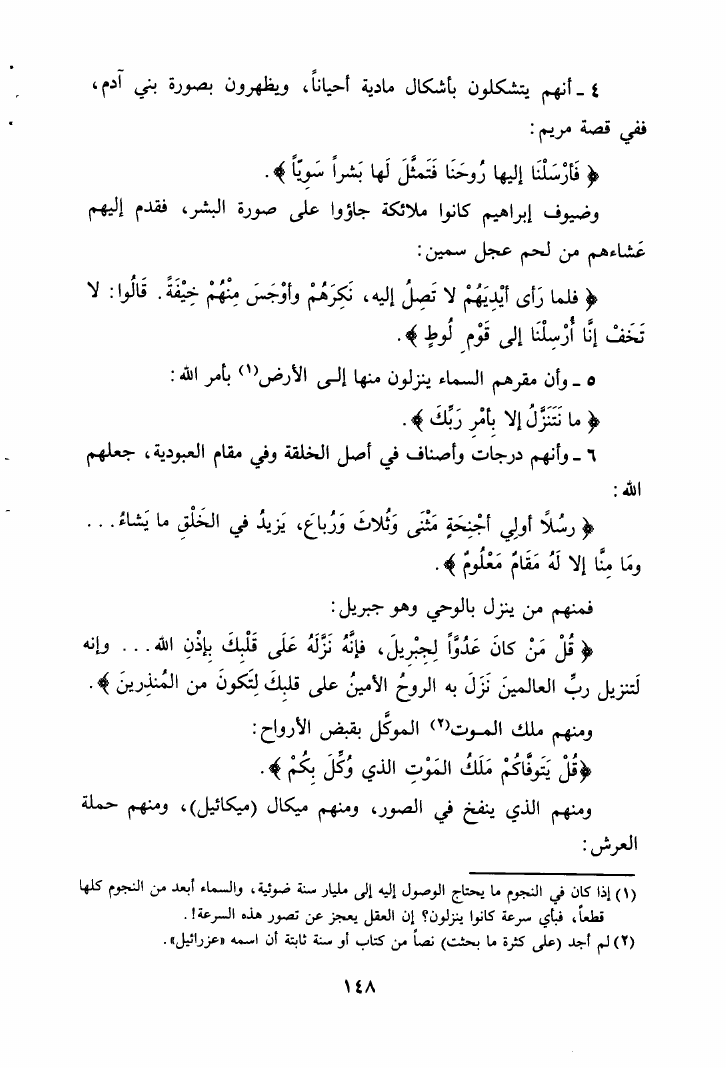 ٤ ـ أنهم يتشكلون بأشكال مادية أحياناً، ويظهرون بصورة بني آدم،
ففي قصة مريم:
﴿ فَأَرْسَلْنَا إليها رُوحَنَا فَتَمثَّلَ لَها بَشراً سَوِيّاً ﴾.
وضيوف إبراهيم كانوا ملائكة جاؤوا على صورة البشر، فقدم إليهم
عَشاءهم من لحم عجل سمين:
﴿ فلما رَأى أيْدِيَهُمْ لا تَصِلُ إليه، نَكِرَهُمْ وأوْجَسَ مِنْهُمْ خِيْفَةً. قَالُوا: لا
تَخَفْ إنَّا أُرسِلْنَا إلى قَوْمِ لُوطٍ ﴾.
٥ ـ وأن مقرهم السماء ينزلون منها إلى الأرض(١) بأمر الله:
﴿ ما نَتَنَزَّلُ إلا بِأمْرِ رَبِّكَ ﴾.
٦ ـ وأنهم درجات وأصناف في أصل الخلقة وفي مقام العبودية، جعلهم
الله:
﴿ رسُلاً أولِي أجْنِحَةٍ مَثْنَى وَثُلاثَ وَرُباعَ، يَزيدُ في الخَلْقِ ما يَشاءُ...
ومَا مِنَّا إلا لَهُ مَقَامٌ مَعْلُومٌ ﴾.
فمنهم من ينزل بالوحي وهو جبريل:
﴿ قُلْ مَنْ كانَ عَدُوّاً لِجِبْرِيلَ، فإنَّهُ نَزَّلَهُ عَلَى قَلْبِكَ بِإذْنِ الله... وإنه
لَتنزيل ربِّ العالمينَ نَزَلَ به الروحُ الأمينُ على قلبِكَ لِتَكونَ من المُنذِرينَ ﴾.
ومنهم ملك الموت(٢) الموكَّل بقبض الأرواح:
﴿قُلْ يَتَوفَّاكُمْ مَلَكُ المَوْتِ الذي وُكِّلَ بِكُمْ ﴾.
ومنهم الذي ينفخ في الصور، ومنهم ميكال (ميكائيل)، ومنهم حملة
العرش:
(١) إذا كان في النجوم ما يحتاج الوصول إليه إلى مليار سنة ضوئية، والسماء أبعد من النجوم كلها
قطعاً، فبأي سرعة كانوا ينزلون؟ إن العقل يعجز عن تصور هذه السرعة!.
(٢) لم أجد (على كثرة ما بحثت) نصاً من كتاب أو سنة ثابتة أن اسمه «عزرائيل».
١٤٨